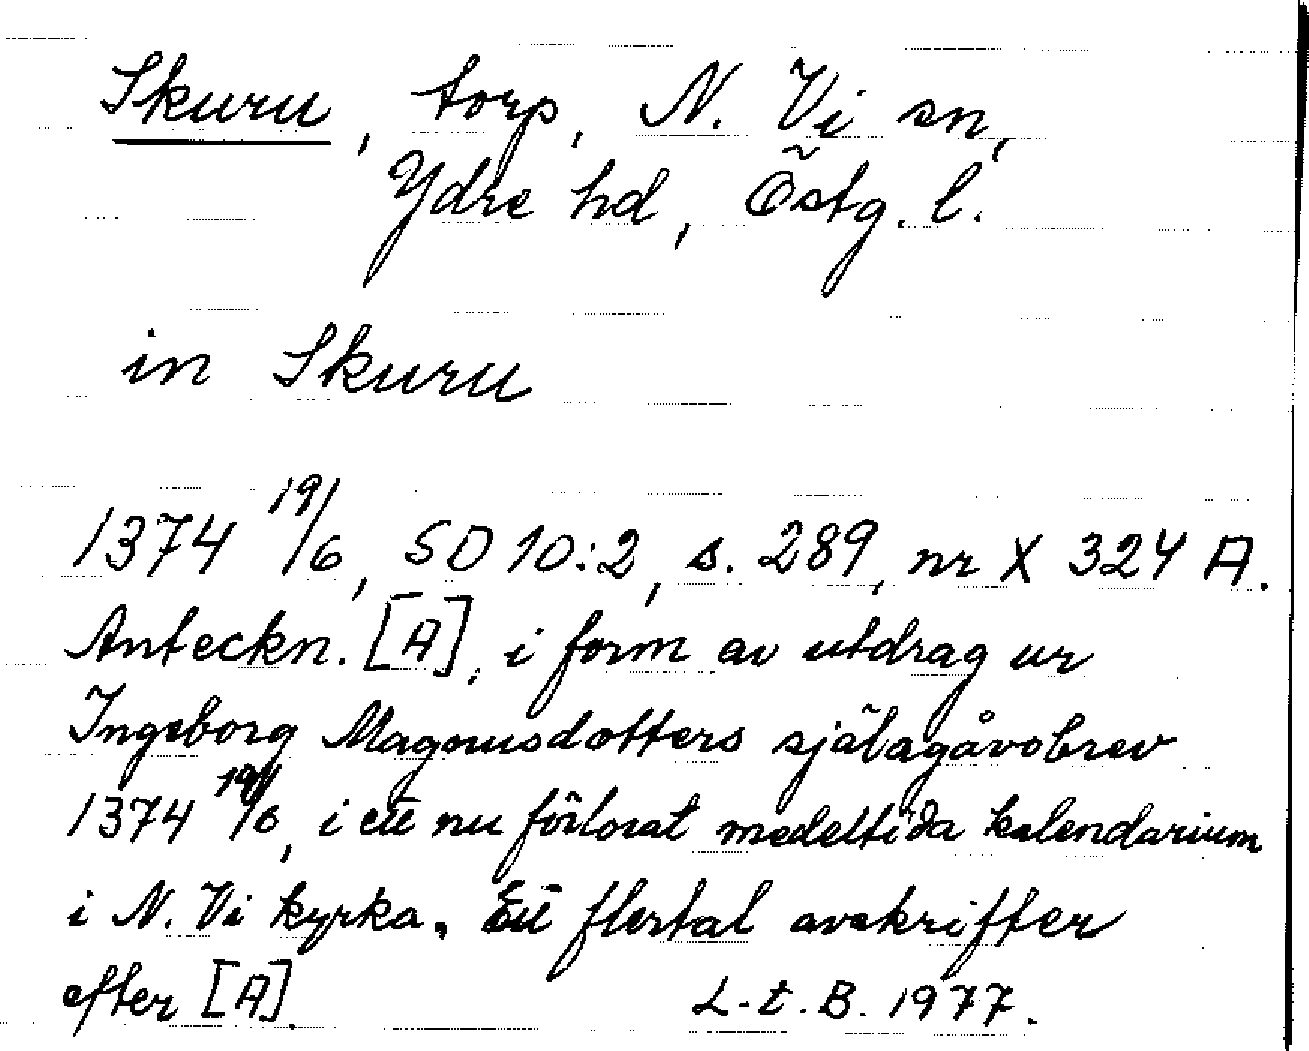 Skuru, torp, N. Vi sn,
Ydre hd, Östg. l.
in Skuru
1374 19/6, SD 10:2, s. 289, nr X 324 A.
Anteckn. [A], i form av utdrag ur
Ingeborg Magnusdotters själagåvobrev
1374 19/6, i ett nu förlorat medeltida kalendarium
i N. Vi kyrka. Ett flertal avskrifter
efter [A]. L-t. B. 1977.